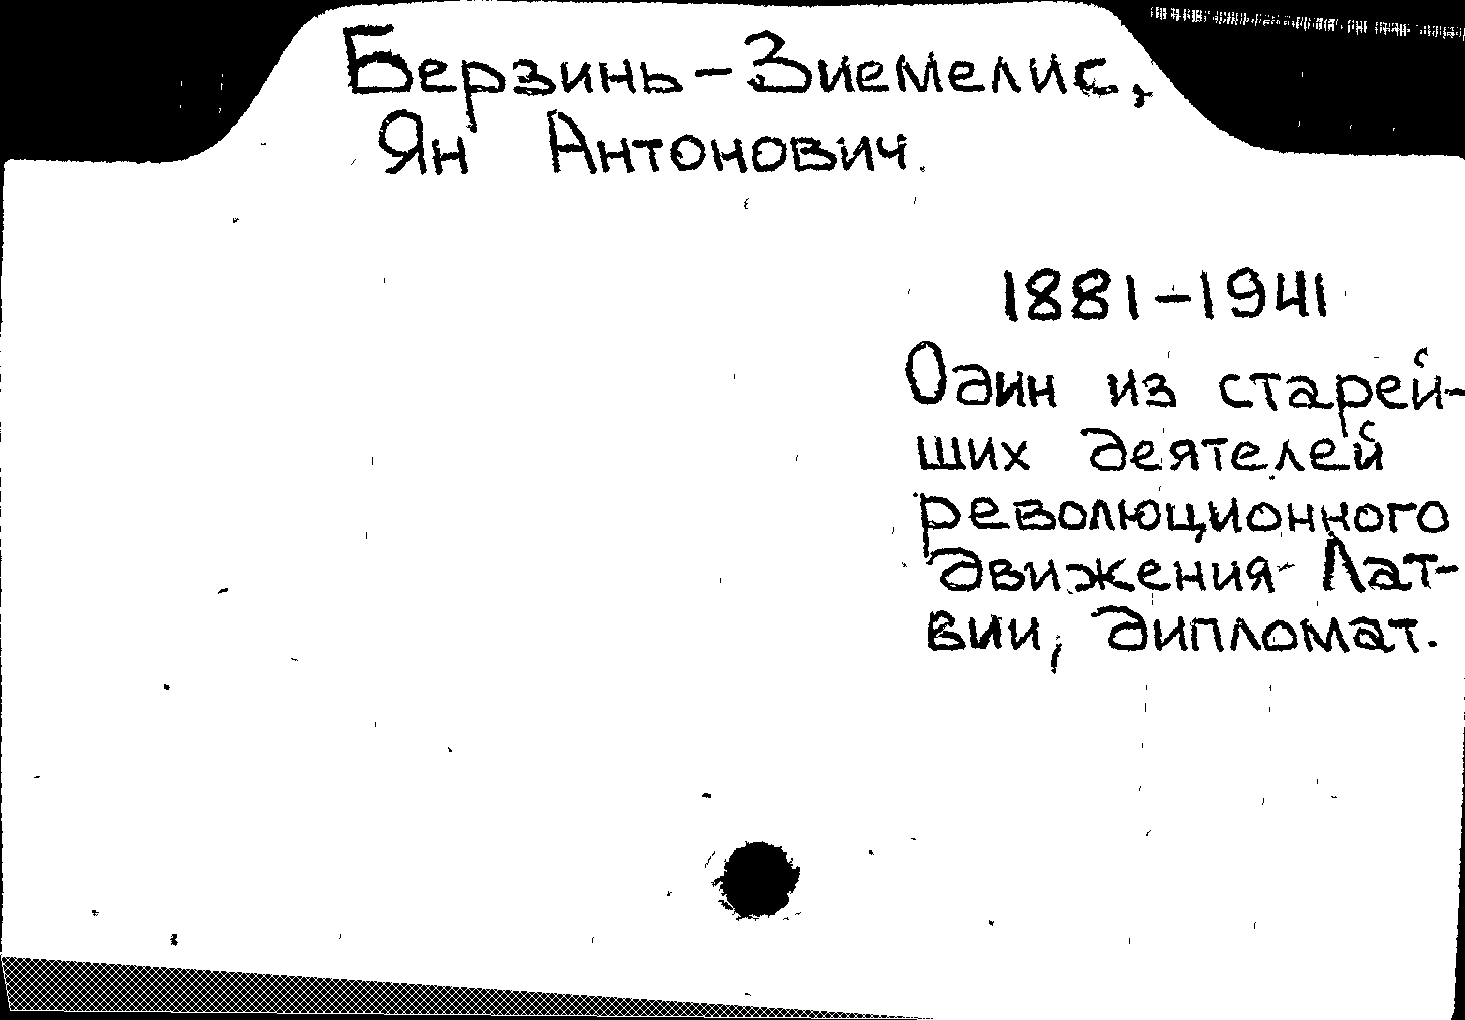 Берзинь-Зиемелис,
Ян Антонович.
1881-1941
Один из старей-
ших деятелей
революционного
движения Лат-
вии, дипломат.